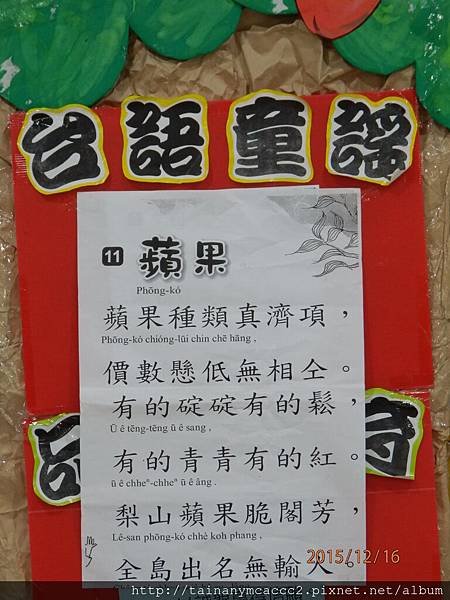 台語童謠
11 蘋果
Phōng-kó
蘋果種類真濟項，
Phōng-kó chióng-lūi chin chē hāng ,
價數懸低無相仝。
有的碇碇有的鬆，
Ū ê tēng-tēng ū ê sang ,
有的青青有的紅。
ū ê chheⁿ-chheⁿ ū ê âng .
梨山蘋果脆閣芳，
Lê-san phōng-kó chhè koh phang ,
全島出名無輸人
2015/12/16
http://tainanymcaccc2.pixnet.net/album